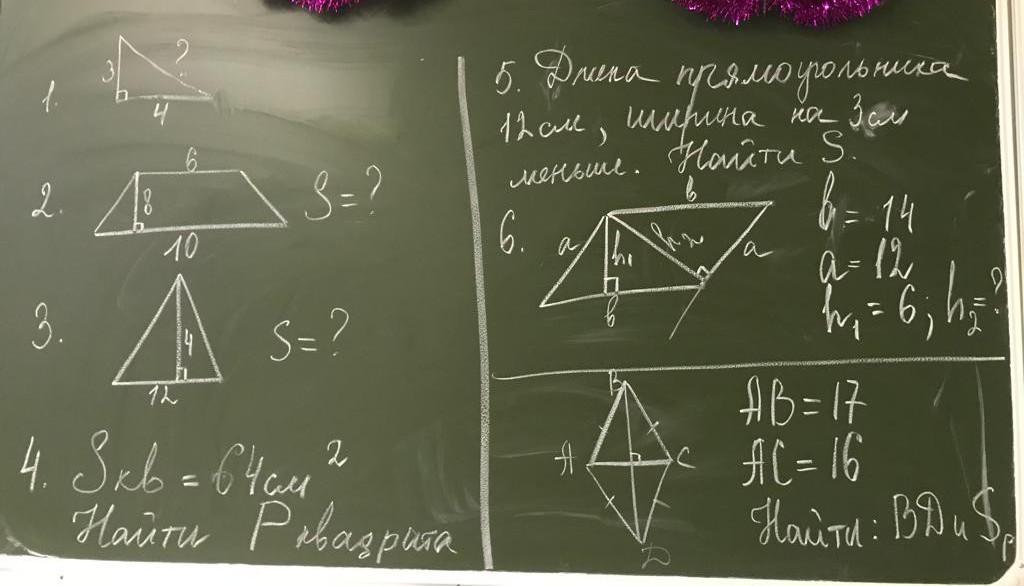 1. 3 ? 4
2. 6 8 10 S = ?
3. 4 12 S = ?
4. Sкв = 64см²
Найти P квадрата
5. Длина прямоугольника
12см, ширина на 3см
меньше. Найти S.
6. a h₁ h₂ b a b
b = 14
a = 12
h₁ = 6; h₂ = ?
B A C D
AB = 17
AC = 16
Найти: BD и Sр